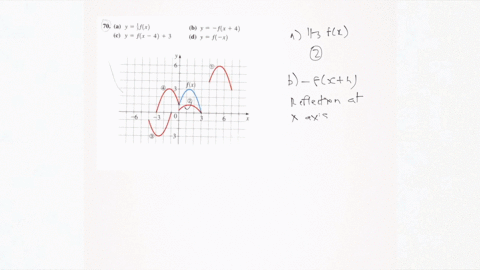 70. (a) y = ⅓f(x) (b) y = -f(x + 4)
(c) y = f(x - 4) + 3 (d) y = f(-x)
y
6
3
f(x)
-6 -3 0 3 6 x
a) 1/3 f(x)
②
b) - f(x+4)
Reflection at
x axis